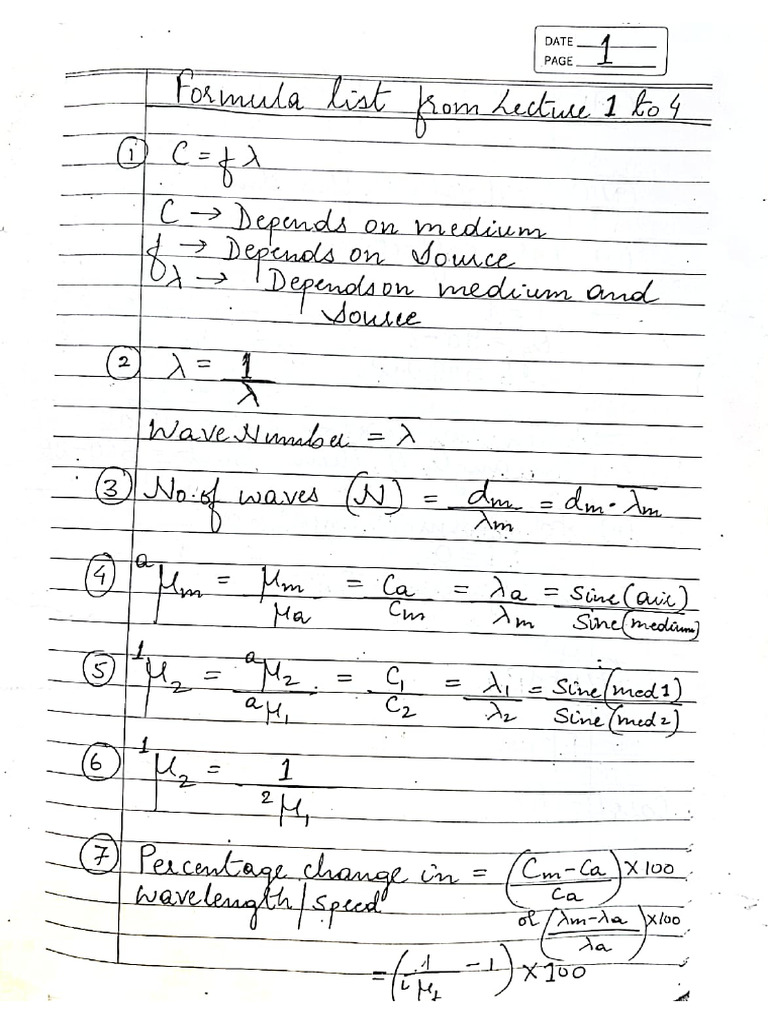 DATE 1
PAGE
Formula list from Lecture 1 to 4
① C = fλ
C → Depends on medium
f → Depends on source
λ → Depends on medium and
source
② λ̄ = 1/λ
Wave Number = λ̄
③ No. of waves (N) = dm/λm = dm · λ̄m
④ ᵃμm = μm/μa = Ca/Cm = λa/λm = Sine(air)/Sine(medium)
⑤ ¹μ₂ = ᵃμ₂/ᵃμ₁ = C₁/C₂ = λ₁/λ₂ = Sine(med 1)/Sine(med 2)
⑥ ¹μ₂ = 1/²μ₁
⑦ Percentage change in = (Cm - Ca/Ca) × 100
wavelength/speed
or (λm - λa/λa) × 100
= (1/¹μ₂ - 1) × 100